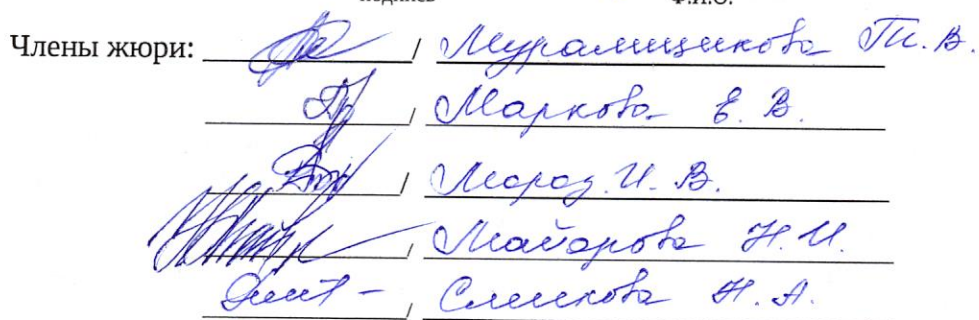 подпись Ф.И.О.
Члены жюри: / Мурамщикова Т. В.
/ Маркова Е. В.
/ Мороз И. В.
/ Майорова Н. И.
/ Слепкова Н. А.